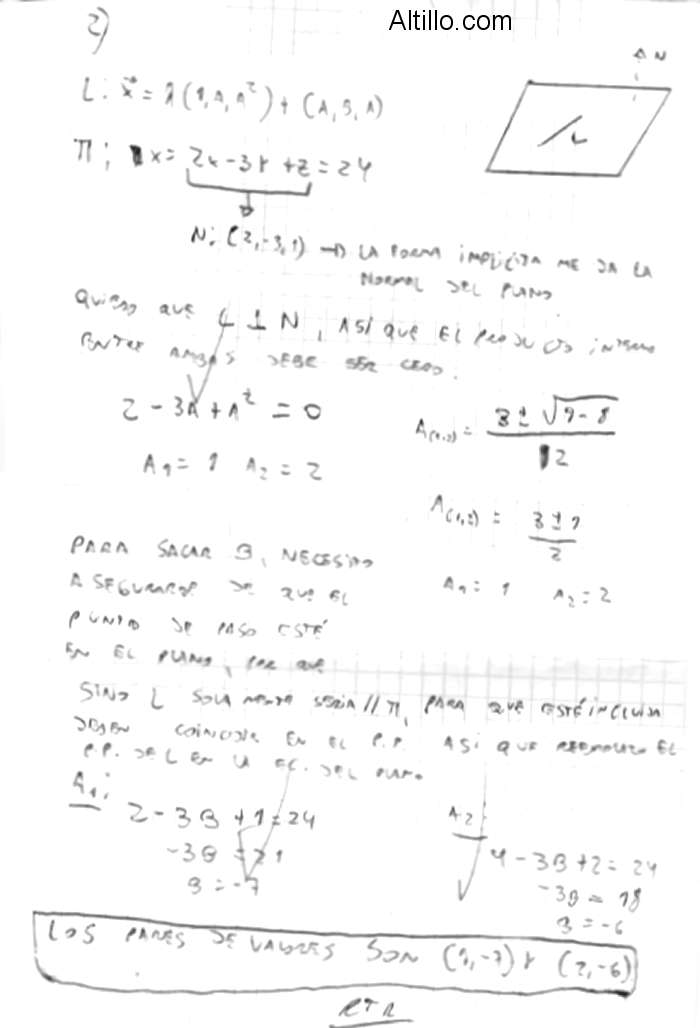 Altillo.com
2)
N
L: x⃗ = λ(1, A, A²) + (A, B, A)
π: x = 2x - 3y + z = 24
N: (2, -3, 1) → LA FORMA IMPLÍCITA ME DA LA
NORMAL DEL PLANO
QUIERO QUE L ⊥ N, ASÍ QUE EL PRODUCTO INTERNO
ENTRE AMBAS DEBE SER CERO.
2 - 3A + A² = 0
A₁ = 1 A₂ = 2
A(1,2) = (3 ± √(9 - 8)) / 2
A(1,2) = (3 ± 1) / 2
A₁ = 1 A₂ = 2
PARA SACAR B, NECESITO
ASEGURARME DE QUE EL
PUNTO DE PASO ESTÉ
EN EL PLANO, POR QUE
SINO L SOLAMENTE SERIA // π, PARA QUE ESTÉ INCLUIDA
DEBEN COINCIDIR EN EL P.P. ASI QUE REEMPLAZO EL
P.P. DE L EN LA EC. DEL PLANO
A₁:
2 - 3B + 1 = 24
-3B = 21
B = -7
A₂
4 - 3B + 2 = 24
-3B = 18
B = -6
LOS PARES DE VALORES SON (1, -7) Y (2, -6)
RTA